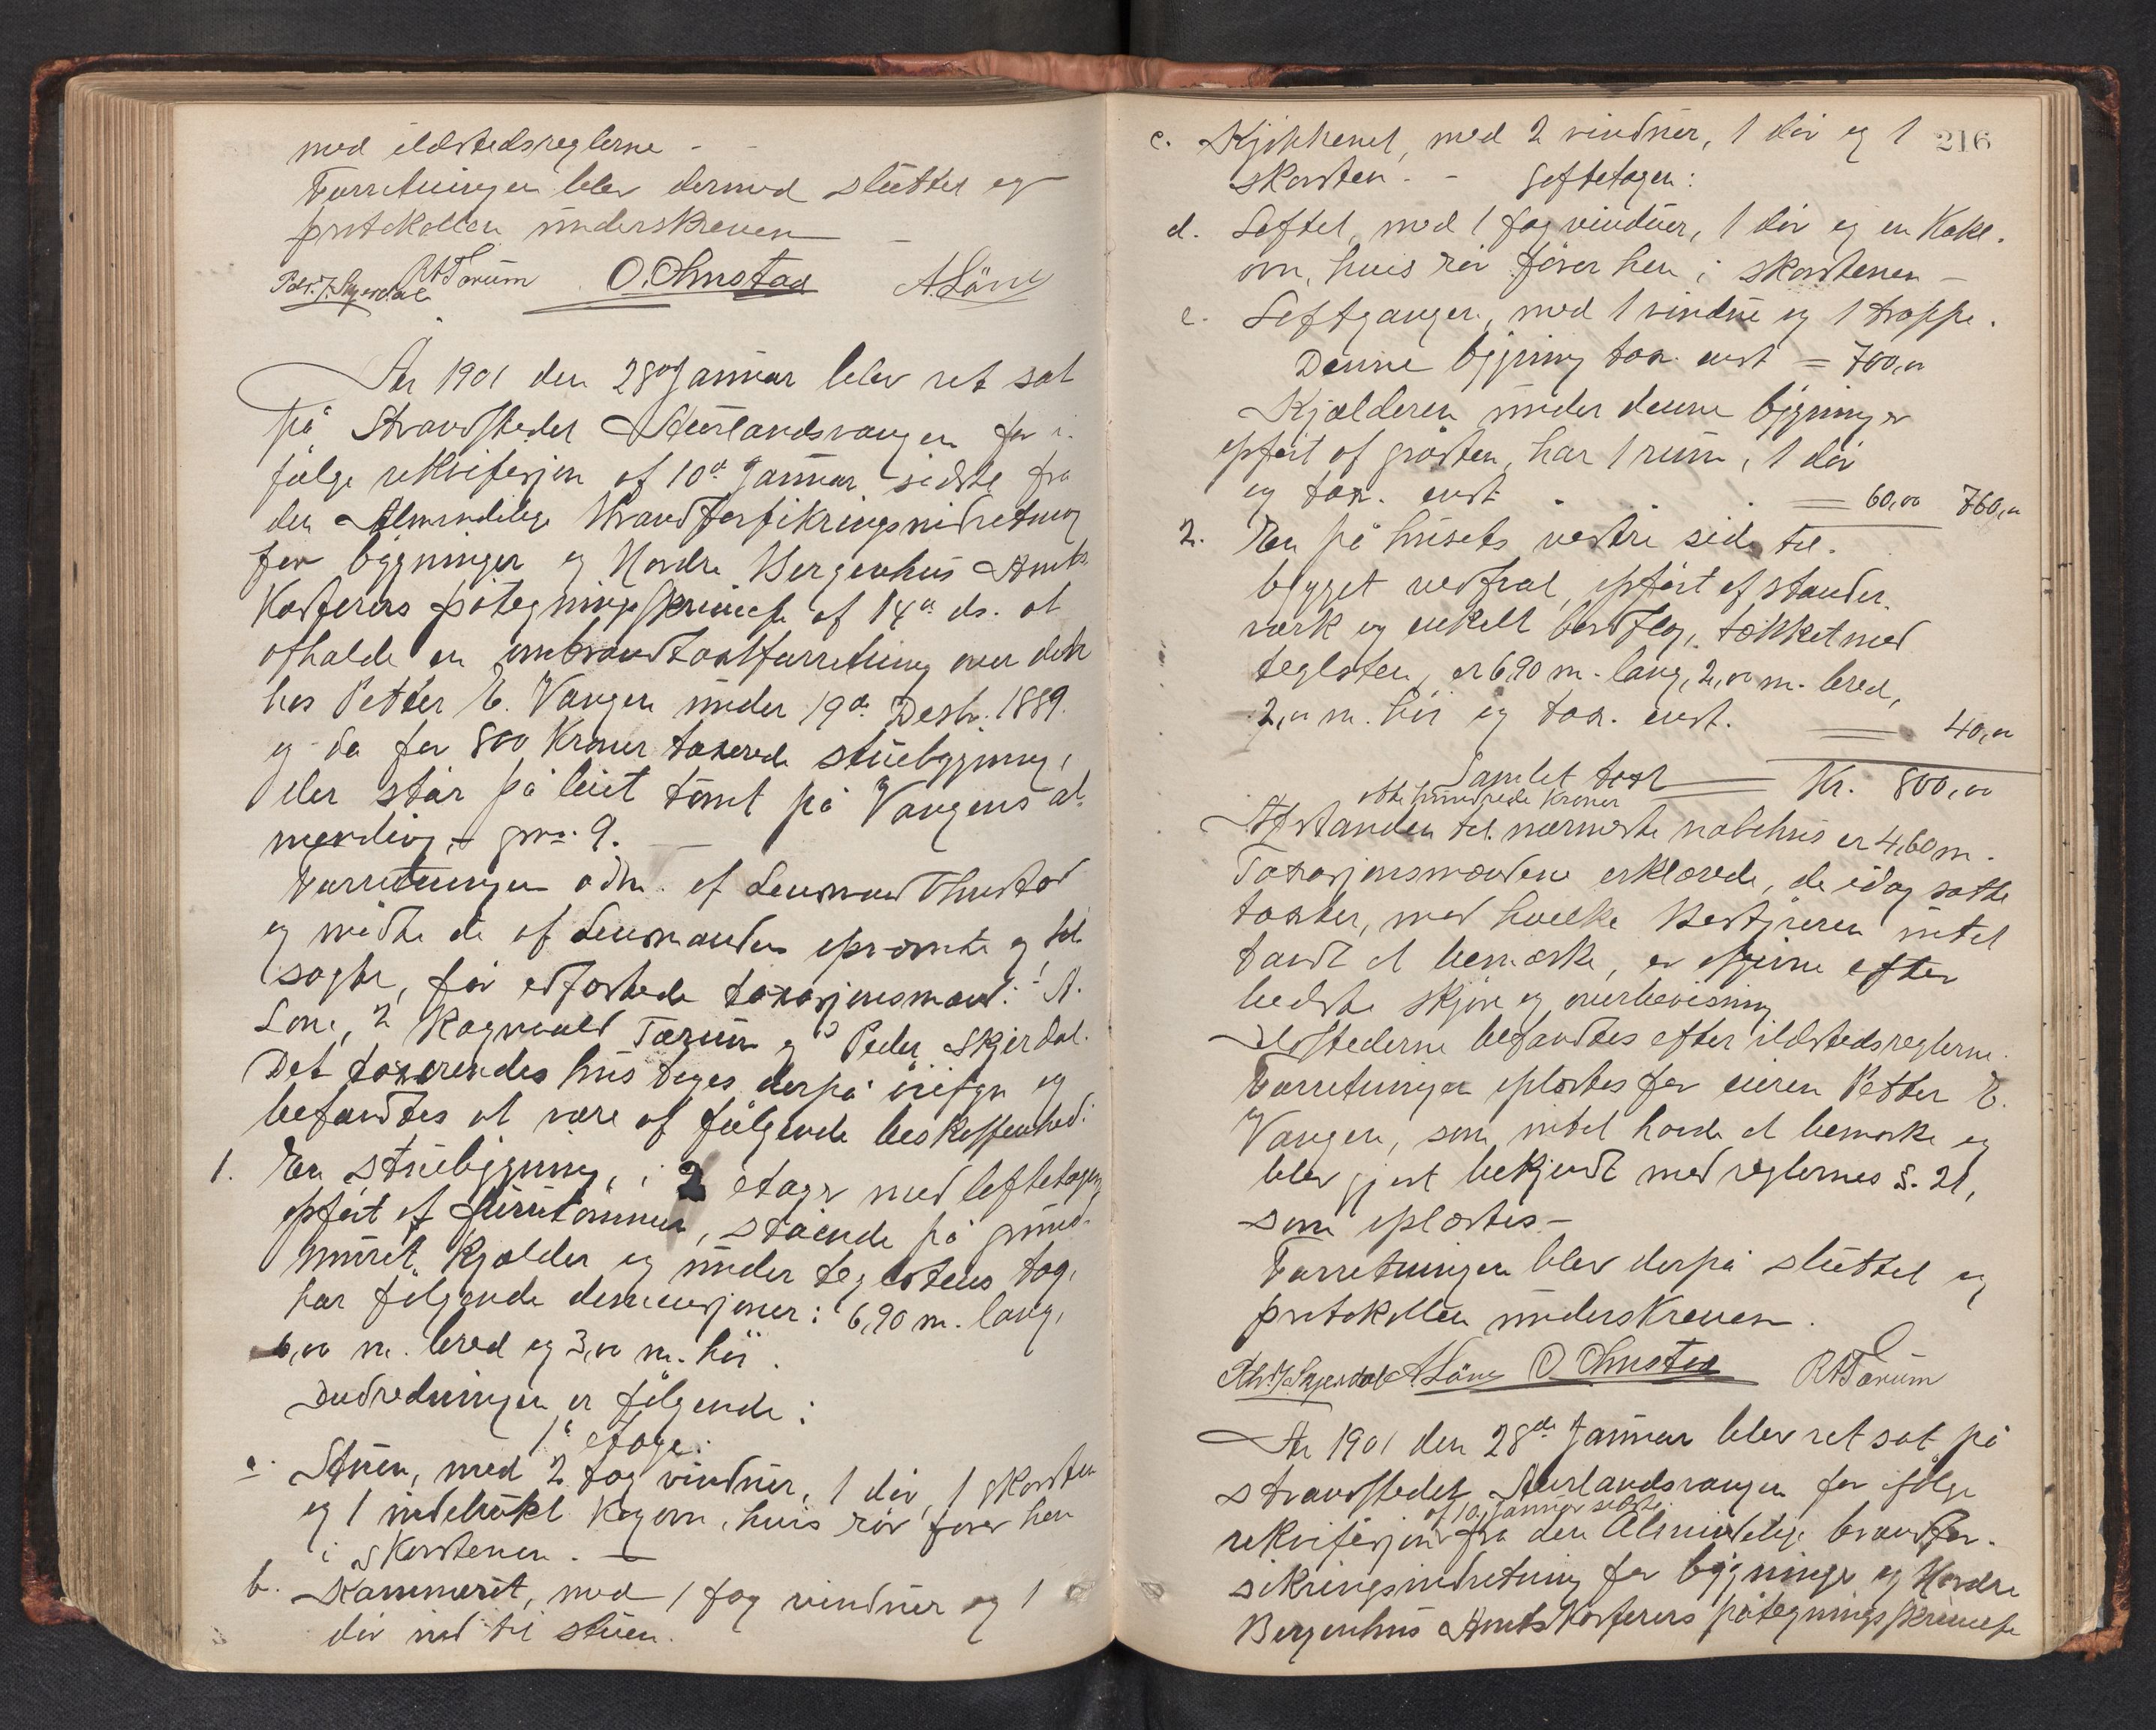 med ildstedsreglerne -
Forretningen blev dermed sluttet og
protokollen underskreven
Petr. J. Skjerdal RATærum O. Ohnstad A. Låne
År 1901 den 28de Januar blev ret sat
på Strandstedet Aurlandsvangen for i-
følge rekvisisjon af 10de Januar sidste fra
den Almindelige Brandforsikringsindretning
for bygninger og Nordre Bergenhus Amts
Kasserers påtegningsskrivelse af 14de ds. at
afholde en ombrandtaxtforretning over den
hos Petter E. Vangen under 19de Desbr. 1889
og da for 800 Kroner taxerede stuebygning,
der står på leiet tomt på Vangens al-
mending - gno. 9.
Forretningen adm. af Lensmand Ohnstad
og mødte de af Lensmanden opnævnte og til-
sagte, før edfæstede taxasjonsmænd: 1 A.
Lone, 2 Ragnvald Tærum og 3 Peder Skjerdal.
Det taxerendes hus toges derpå i øiesyn og
befandtes at være af følgende beskaffenhed:
1. En stuebygning, i 2 etager med loftetagen,
opført af furutømmer, stående på grund-
muret kjælder og under teglstens tag,
har følgende dimensjoner: 6,90 m. lang,
6,00 m. bred og 3,00 m. høi.
Indredningen er følgende:
1e etage:
a. Stuen, med 2 fag vinduer, 1 dør, 1 skorsten
og 1 indelukt kogovn, hvis rør fører hen
i skorstenen. -
b. Kammerit, med 1 fag vinduer og 1
dør ind til stuen.
216
c. Kjøkkenet, med 2 vinduer, 1 dør og 1
skorsten. - Loftetagen:
d. Loftet, med 1 fag vinduer, 1 dør og en Kakl-
ovn, hvis rør fører hen i skorstenen -
e. Loftgangen, med 1 vindue og 1 trappe.
Denne bygning tax. enst = 700,00
Kjælderen under denne bygning er
opført af gråsten, har 1 rum, 1 dør
og tax. enst. = 60,00 760,00
2. En på husets vestre side til-
bygget vedskal, opført af stander-
værk og enkelt bordslag, tækket med
teglsten, er 6,90 m. lang, 2,00 m. bred,
2,00 m. høi og tax. enst. = 40,00
Samlet taxt = Kr. 800,00
otte hundrede Kroner
Afstanden til nærmeste nabohus er 4,60 m.
Taxasjonsmændene erklærede, de idag satte
taxter, med hvilke Bestyreren intet
fandt at bemærke, er afgivne efter
bedste skjøn og overbevisning
Ildstederne befandtes efter ildstedsreglerne.
Forretningen oplæstes for eieren Petter E.
Vangen, som intet havde at bemærke og
blev gjort bekjendt med reglernes §. 21,
som oplæstes -
Forretningen blev derpå sluttet og
protokollen underskreven.
Petr. J. Skjerdal A Låne O Ohnstad RATærum
År 1901 den 28de Januar blev ret sat på
strandstedet Aurlandsvangen for ifølge
af 10 Januar sidste
rekvisisjon fra den Almindelige brandfor-
sikringsindretning for bygninger og Nordre
Bergenhus Amtskasserers påtegningsskrivelse